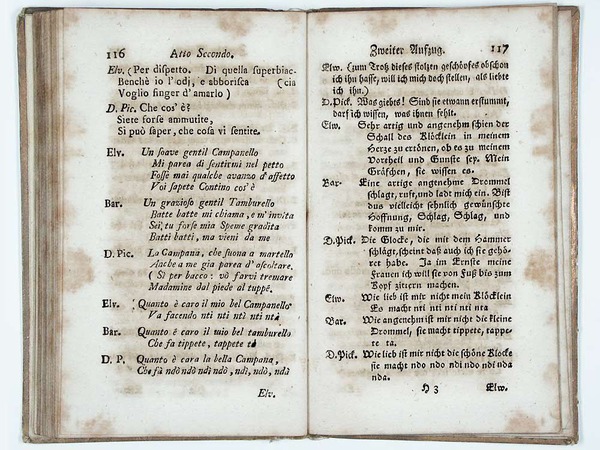 116 Atto Secondo.
Elv. (Per dispetto. Di quella superbiac-
Benchè io l'odj, e abborisca (cia
Voglio finger d'amarlo )
D. Pic. Che cos' è?
Siete forse ammutite,
Si può saper, che cosa vi sentite.
Elv. Un soave gentil Campanello
Mi parea di sentirmi nel petto
Fosse mai qualche avanzo d'affetto
Voi sapete Contino cos' è
Bar. Un grazioso gentil Tamburello
Batte batte mi chiama, e m' invita
Sei, tu forse mia Speme gradita
Batti batti, ma vieni da me
D. Pic. La Campana, che suona a martello
Anche a me gia parea d'ascoltare.
( Si per bacco: vò farvi tremare
Madamine dal piede al tuppè.
Elv. Quanto è caro il mio bel Campanello
Va facendo nti nti nti nti ntà
Bar. Quanto è caro il mio bel tamburello
Che fa tippete, tappete tà
D. P. Quanto è cara la bella Campana,
Che fà ndò ndò ndi ndò, ndi, ndò, ndà
Elv.
Zweiter Aufzug. 117
Elw. (zum Troß dieses stolzen geschöpfes obschon
ich ihn hasse, will ich mich doch stellen, als liebte
ich ihn.)
D.Pick. Was giebts! Sind sie etwann erstummt,
darf ich wissen, was ihnen fehlt.
Elw. Sehr artig und angenehm schien der
Schall des Klöcklein in meinem
Herze zu ertönen, ob es zu meinem
Vortheil und Gunste sey. Mein
Gräfchen, sie wissen es.
Bar- Eine artige angenehme Drommel
schlagt, rufe, und ladt mich ein. Bist
dus vielleicht sehnlich gewünschte
Hoffnung, Schlag, Schlag, und
komm zu mir.
D.Pick. Die Glocke, die mit dem Hammer
schlägt, scheint daß auch ich sie gehö-
ret habe. Ja im Ernste meine
Frauen ich will sie von Fuß bis zum
Kopf zittern machen.
Elw. Wie lieb ist mir nicht mein Klöcklein
Es macht nti nti nti nti nta
Bar. Wie angenehm ist mir nicht die kleine
Drommel, sie macht tippete, tappe-
te ta.
D.Pick. Wie lieb ist mir nicht die schöne Klocke
sie macht ndo ndo ndi ndo ndi nda
nda.
H 3 Elw.